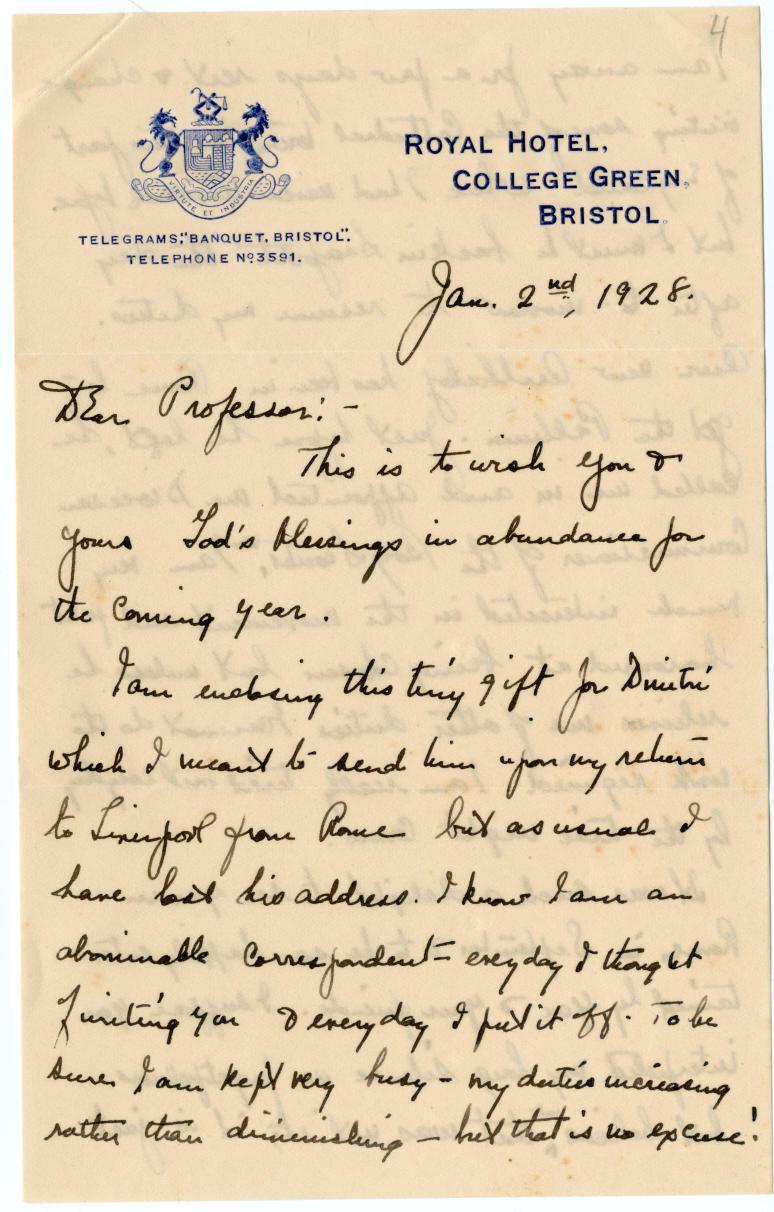 4
VIRTUTE ET INDUSTRIA
ROYAL HOTEL,
COLLEGE GREEN,
BRISTOL.
TELEGRAMS,"BANQUET, BRISTOL".
TELEPHONE Nº3591.
Jan. 2nd, 1928.
Dear Professor: -
This is to wish you &
yours God's blessings in abundance for
the coming year.
I am enclosing this tiny gift for Dimitri
which I meant to send him upon my return
to Liverpool from Rome but as usual I
have lost his address. I know I am an
abominable correspondent - everyday I thought
of writing you & everyday I put it off. To be
sure I am kept very busy - my duties increasing
rather than diminishing - but that is no excuse!